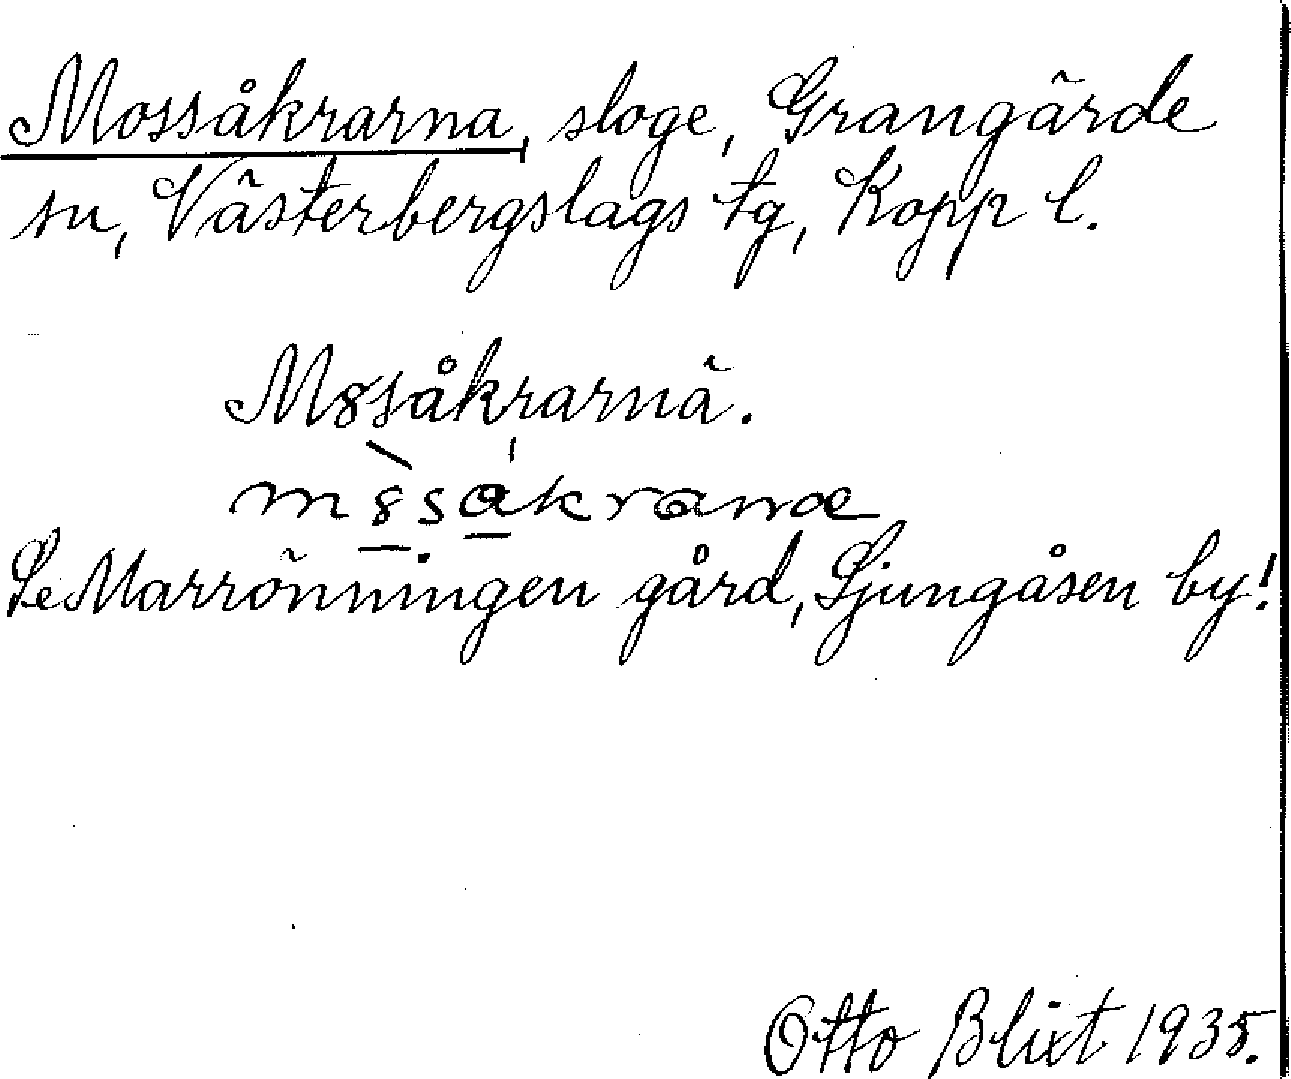 Mossåkrarna, sloge, Grangärde
sn, Västerbergslags tg, Kopp l.
M8såkrarnä.
m8såkranæ
Se Marrönningen gård, Ljungåsen by!
Otto Blixt 1935.